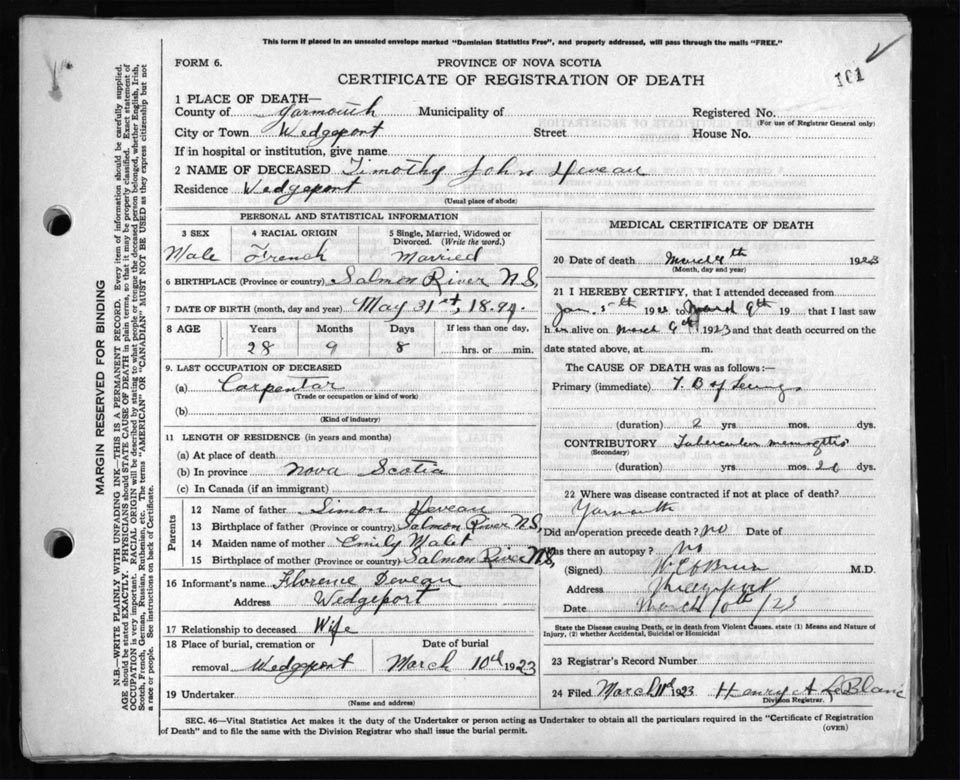 This form if placed in an unsealed envelope marked "Dominion Statistics Free", and properly addressed, will pass through the mails "FREE."
FORM 6.
PROVINCE OF NOVA SCOTIA
CERTIFICATE OF REGISTRATION OF DEATH
101
1 PLACE OF DEATH—
County of Yarmouth Municipality of Registered No.
(For use of Registrar General only)
City or Town Wedgeport Street House No.
If in hospital or institution, give name
2 NAME OF DECEASED Timothy John Deveau
Residence Wedgeport
(Usual place of abode)
PERSONAL AND STATISTICAL INFORMATION
3 SEX
Male
4 RACIAL ORIGIN
French
5 Single, Married, Widowed or Divorced. (Write the word.)
Married
6 BIRTHPLACE (Province or country) Salmon River N.S.
7 DATE OF BIRTH (month, day and year) May 31st, 1894.
8 AGE Years Months Days If less than one day,
28 9 8 hrs. or min.
9. LAST OCCUPATION OF DECEASED
(a) Carpentar
(Trade or occupation or kind of work)
(b)
(Kind of industry)
11 LENGTH OF RESIDENCE (in years and months)
(a) At place of death
(b) In province Nova Scotia
(c) In Canada (if an immigrant)
Parents
12 Name of father Simon Deveau
13 Birthplace of father (Province or country) Salmon River N.S,
14 Maiden name of mother Emily
15 Birthplace of mother (Province or country) Salmon River N.S,
16 Informant's name Florence Deveau
Address Wedgeport
17 Relationship to deceased Wife
18 Place of burial, cremation or Date of burial
removal Wedgeport March 10th 1923
19 Undertaker
(Name and address)
MEDICAL CERTIFICATE OF DEATH
20 Date of death March 9th 1923
(Month, day and year)
21 I HEREBY CERTIFY, that I attended deceased from
Jan. 5th 192 to March 9th 19 that I last saw
h im alive on March 9th 1923 and that death occurred on the
date stated above, at m.
The CAUSE OF DEATH was as follows:—
Primary (immediate) T. B of Lungs
(duration) 2 yrs mos. dys.
CONTRIBUTORY Tubercular meningitis
(Secondary)
(duration) yrs mos. dys.
22 Where was disease contracted if not at place of death?
Yarmouth
Did an operation precede death? no Date of
Was there an autopsy? no
(Signed) M.D.
Address
Date March 10th/23
State the Disease causing Death, or in death from Violent Causes, state (1) Means and Nature of
Injury, (2) whether Accidental, Suicidal or Homicidal
23 Registrar's Record Number
24 Filed March 11th 1923 Henry A LeBlanc
Division Registrar.
SEC. 46—Vital Statistics Act makes it the duty of the Undertaker or person acting as Undertaker to obtain all the particulars required in the "Certificate of Registration
of Death" and to file the same with the Division Registrar who shall issue the burial permit.
(OVER)
MARGIN RESERVED FOR BINDING
N.B.—WRITE PLAINLY WITH UNFADING INK—THIS IS A PERMANENT RECORD. Every item of information should be carefully supplied.
AGE should be stated EXACTLY. PHYSICIANS should STATE CAUSE OF DEATH in plain terms, so that it may be properly classified. Exact statement of
OCCUPATION is very important. RACIAL ORIGIN will be described by stating to what people or tongue the deceased person belonged, whether English, Irish,
Scotch, French, German, Russian, Ruthenian, etc. The terms "AMERICAN" OR "CANADIAN" MUST NOT BE USED as they express citizenship but not
a race or people. See instructions on back of Certificate.